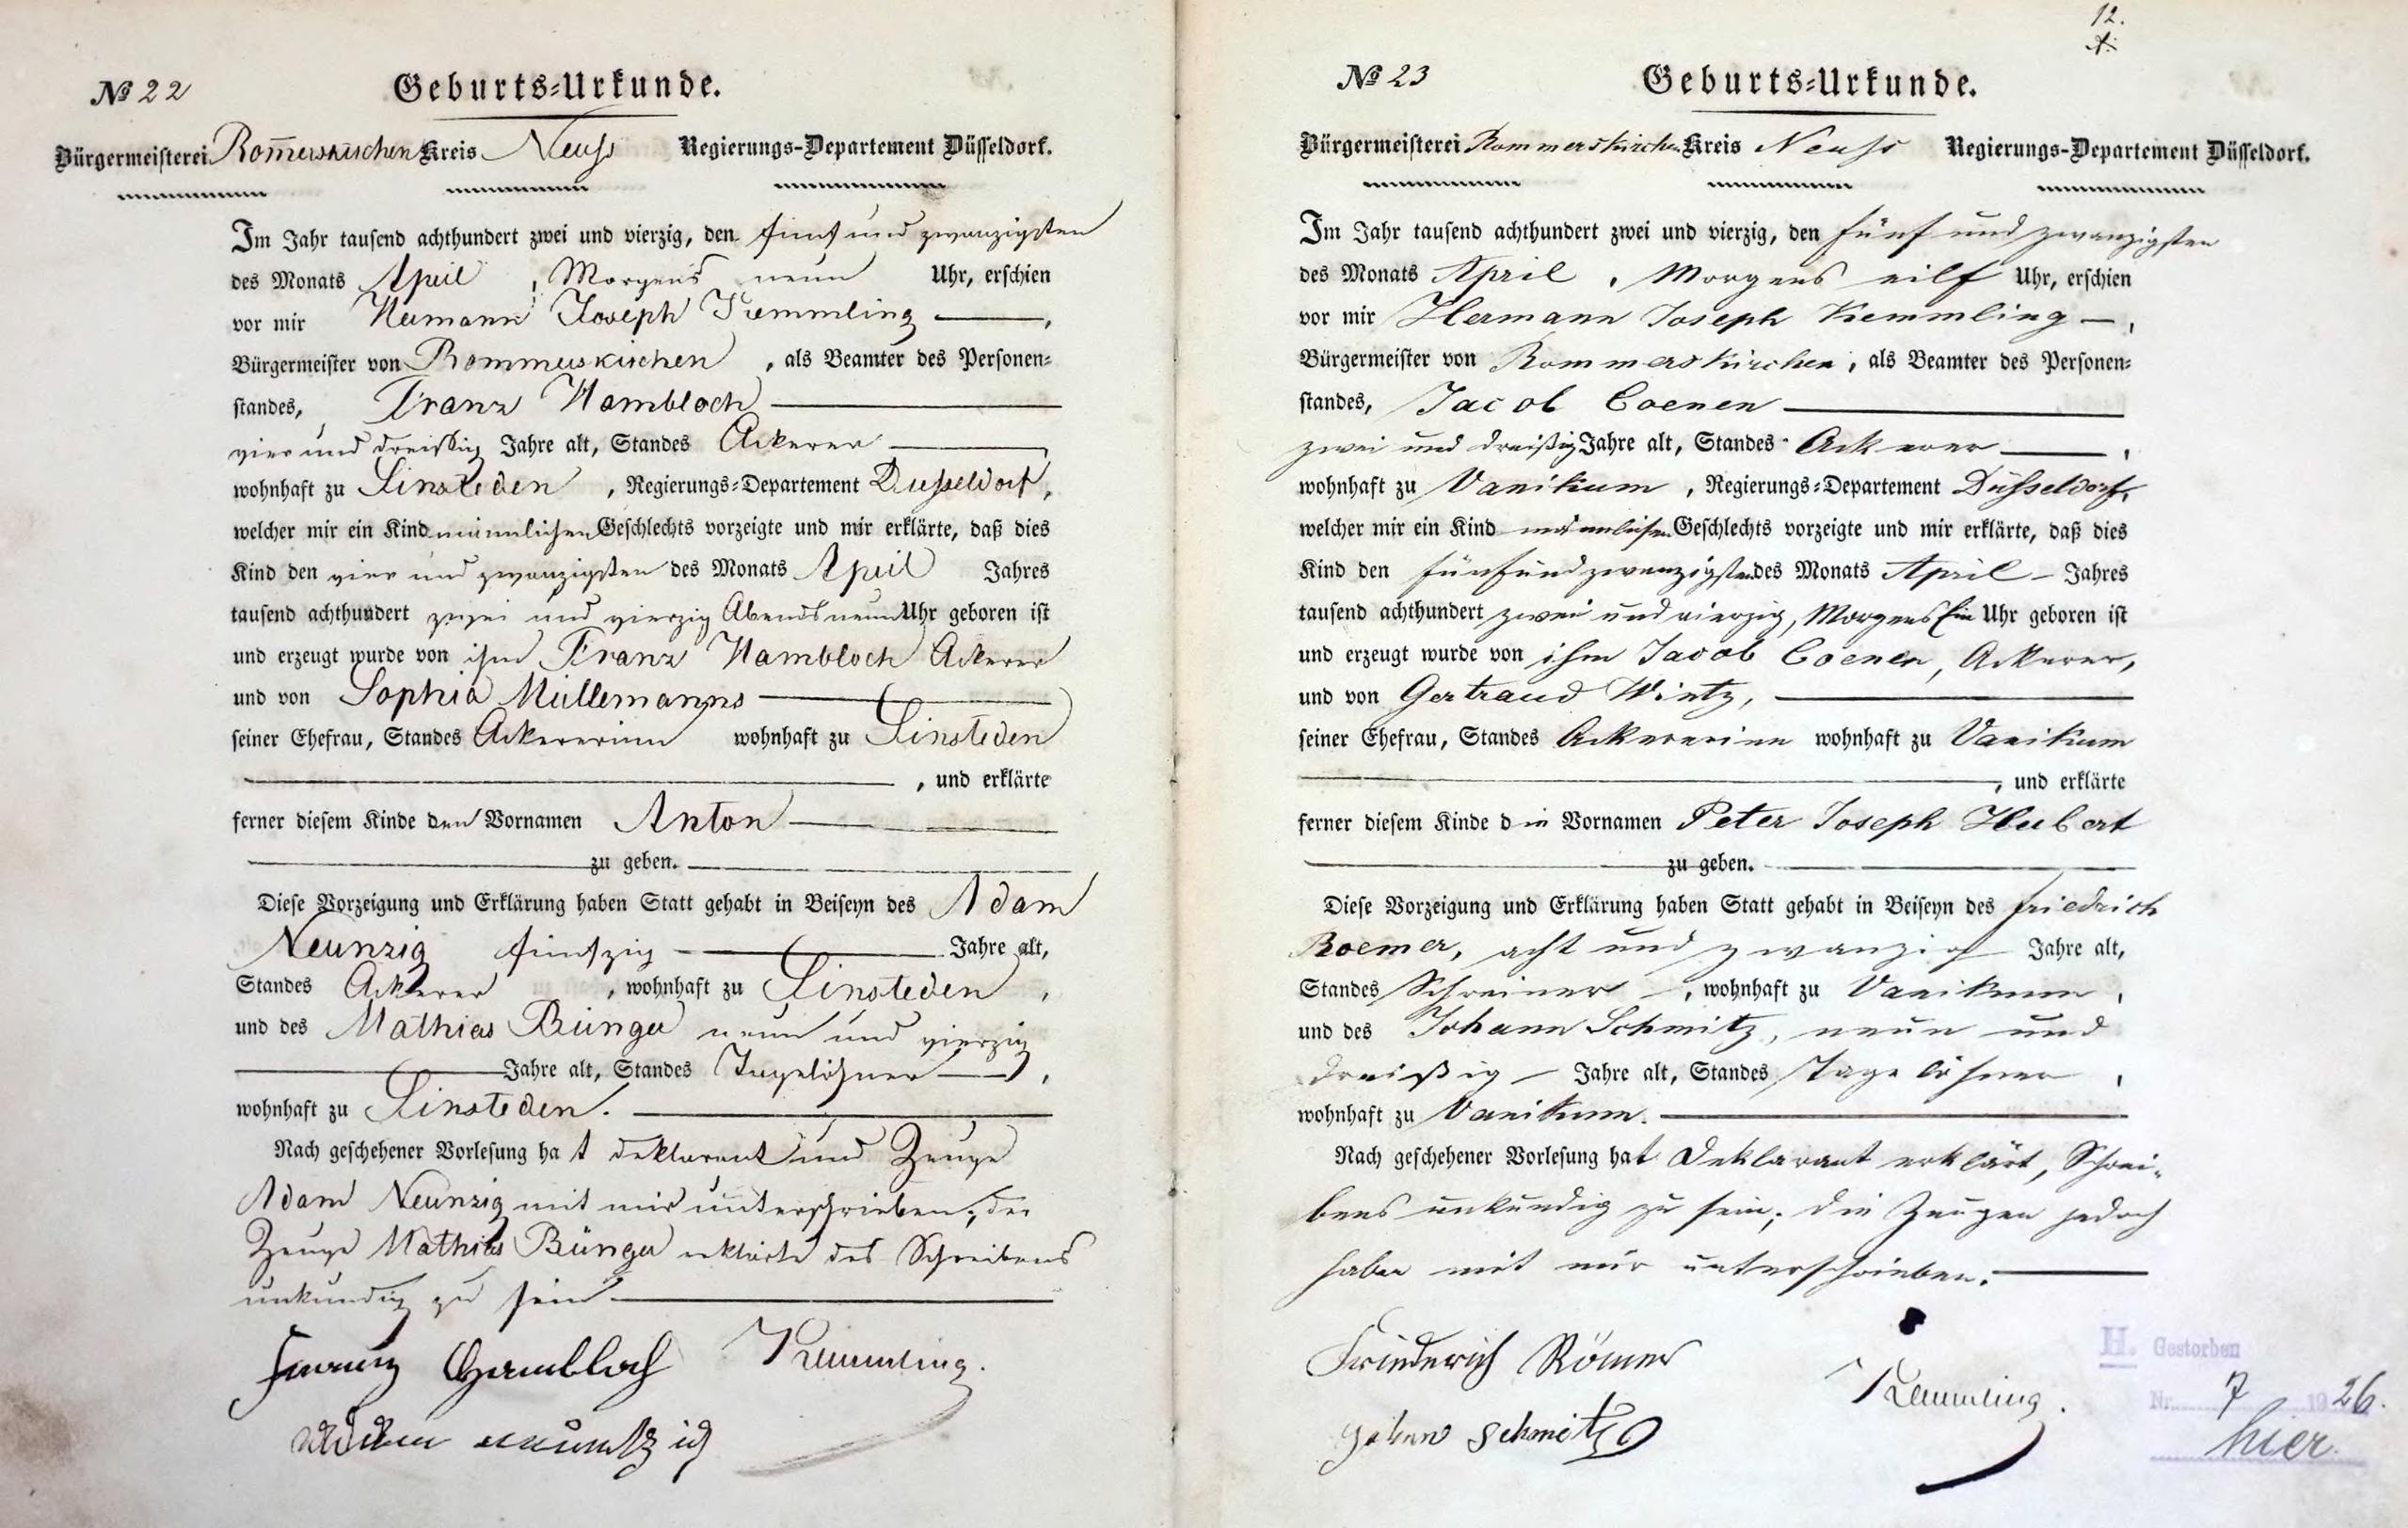 № 22
Geburts-Urkunde.
Bürgermeisterei Rom̄erskirchen Kreis Neuss Regierungs-Departement Düsseldorf.
Im Jahr tausend achthundert zwei und vierzig, den fünf und zwanzigsten
des Monats April, Morgens neun Uhr, erschien
vor mir Hermann Joseph Kemmling,
Bürgermeister von Rommerskirchen, als Beamter des Personen-
standes, Franz Hambloch
vier und dreißig Jahre alt, Standes Ackerer
wohnhaft zu Sinsteden, Regierungs-Departement Düsseldorf,
welcher mir ein Kind männlichen Geschlechts vorzeigte und mir erklärte, daß dies
Kind den vier und zwanzigsten des Monats April Jahres
tausend achthundert zwei und vierzig Abends neun Uhr geboren ist
und erzeugt wurde von ihm Franz Hambloch Ackerer
und von Sophia Müllemanns
seiner Ehefrau, Standes Ackererinn wohnhaft zu Sinsteden
, und erklärte
ferner diesem Kinde den Vornamen Anton
zu geben.
Diese Vorzeigung und Erklärung haben Statt gehabt in Beiseyn des Adam
Neunzig fünfzig Jahre alt,
Standes Ackerer, wohnhaft zu Sinsteden,
und des Mathias Bünger neun und vierzig
Jahre alt, Standes Tagelöhner,
wohnhaft zu Sinsteden.
Nach geschehener Vorlesung hat Deklarant und Zeuge
Adam Neunzig mit mir unterschrieben; der
Zeuge Mathias Bünger erklärte des Schreibens
unkundig zu sein
Franz Hambloch Kemmling.
Adam Neuntzig
12.
№ 23
Geburts-Urkunde.
Bürgermeisterei Rommerskirchen Kreis Neuss Regierungs-Departement Düsseldorf.
Im Jahr tausend achthundert zwei und vierzig, den fünf und zwanzigsten
des Monats April, Morgens eilf Uhr, erschien
vor mir Hermann Joseph Kemmling,
Bürgermeister von Rommerskirchen, als Beamter des Personen-
standes, Jacob Coenen
zwei und dreißig Jahre alt, Standes Ackerer,
wohnhaft zu Vanikum, Regierungs-Departement Düsseldorf,
welcher mir ein Kind männlichen Geschlechts vorzeigte und mir erklärte, daß dies
Kind den fünf und zwanzigsten des Monats April Jahres
tausend achthundert zwei und vierzig, Morgens Ein Uhr geboren ist
und erzeugt wurde von ihm Jacob Coenen, Ackerer,
und von Gertraud Wintz,
seiner Ehefrau, Standes Ackererinn wohnhaft zu Vanikum
, und erklärte
ferner diesem Kinde die Vornamen Peter Joseph Hubert
zu geben.
Diese Vorzeigung und Erklärung haben Statt gehabt in Beiseyn des Friedrich
Roemer, acht und zwanzig Jahre alt,
Standes Schreiner, wohnhaft zu Vanikum,
und des Johann Schmitz, neun und
dreißig Jahre alt, Standes Tagelöhner,
wohnhaft zu Vanikum.
Nach geschehener Vorlesung hat Deklarant erklärt, Schrei-
bens unkundig zu sein; die Zeugen jedoch
haben mit mir unterschrieben.
Friederich Römer
Kemmling.
Johan Schmitz
H. Gestorben
Nr. 7 1926.
hier.